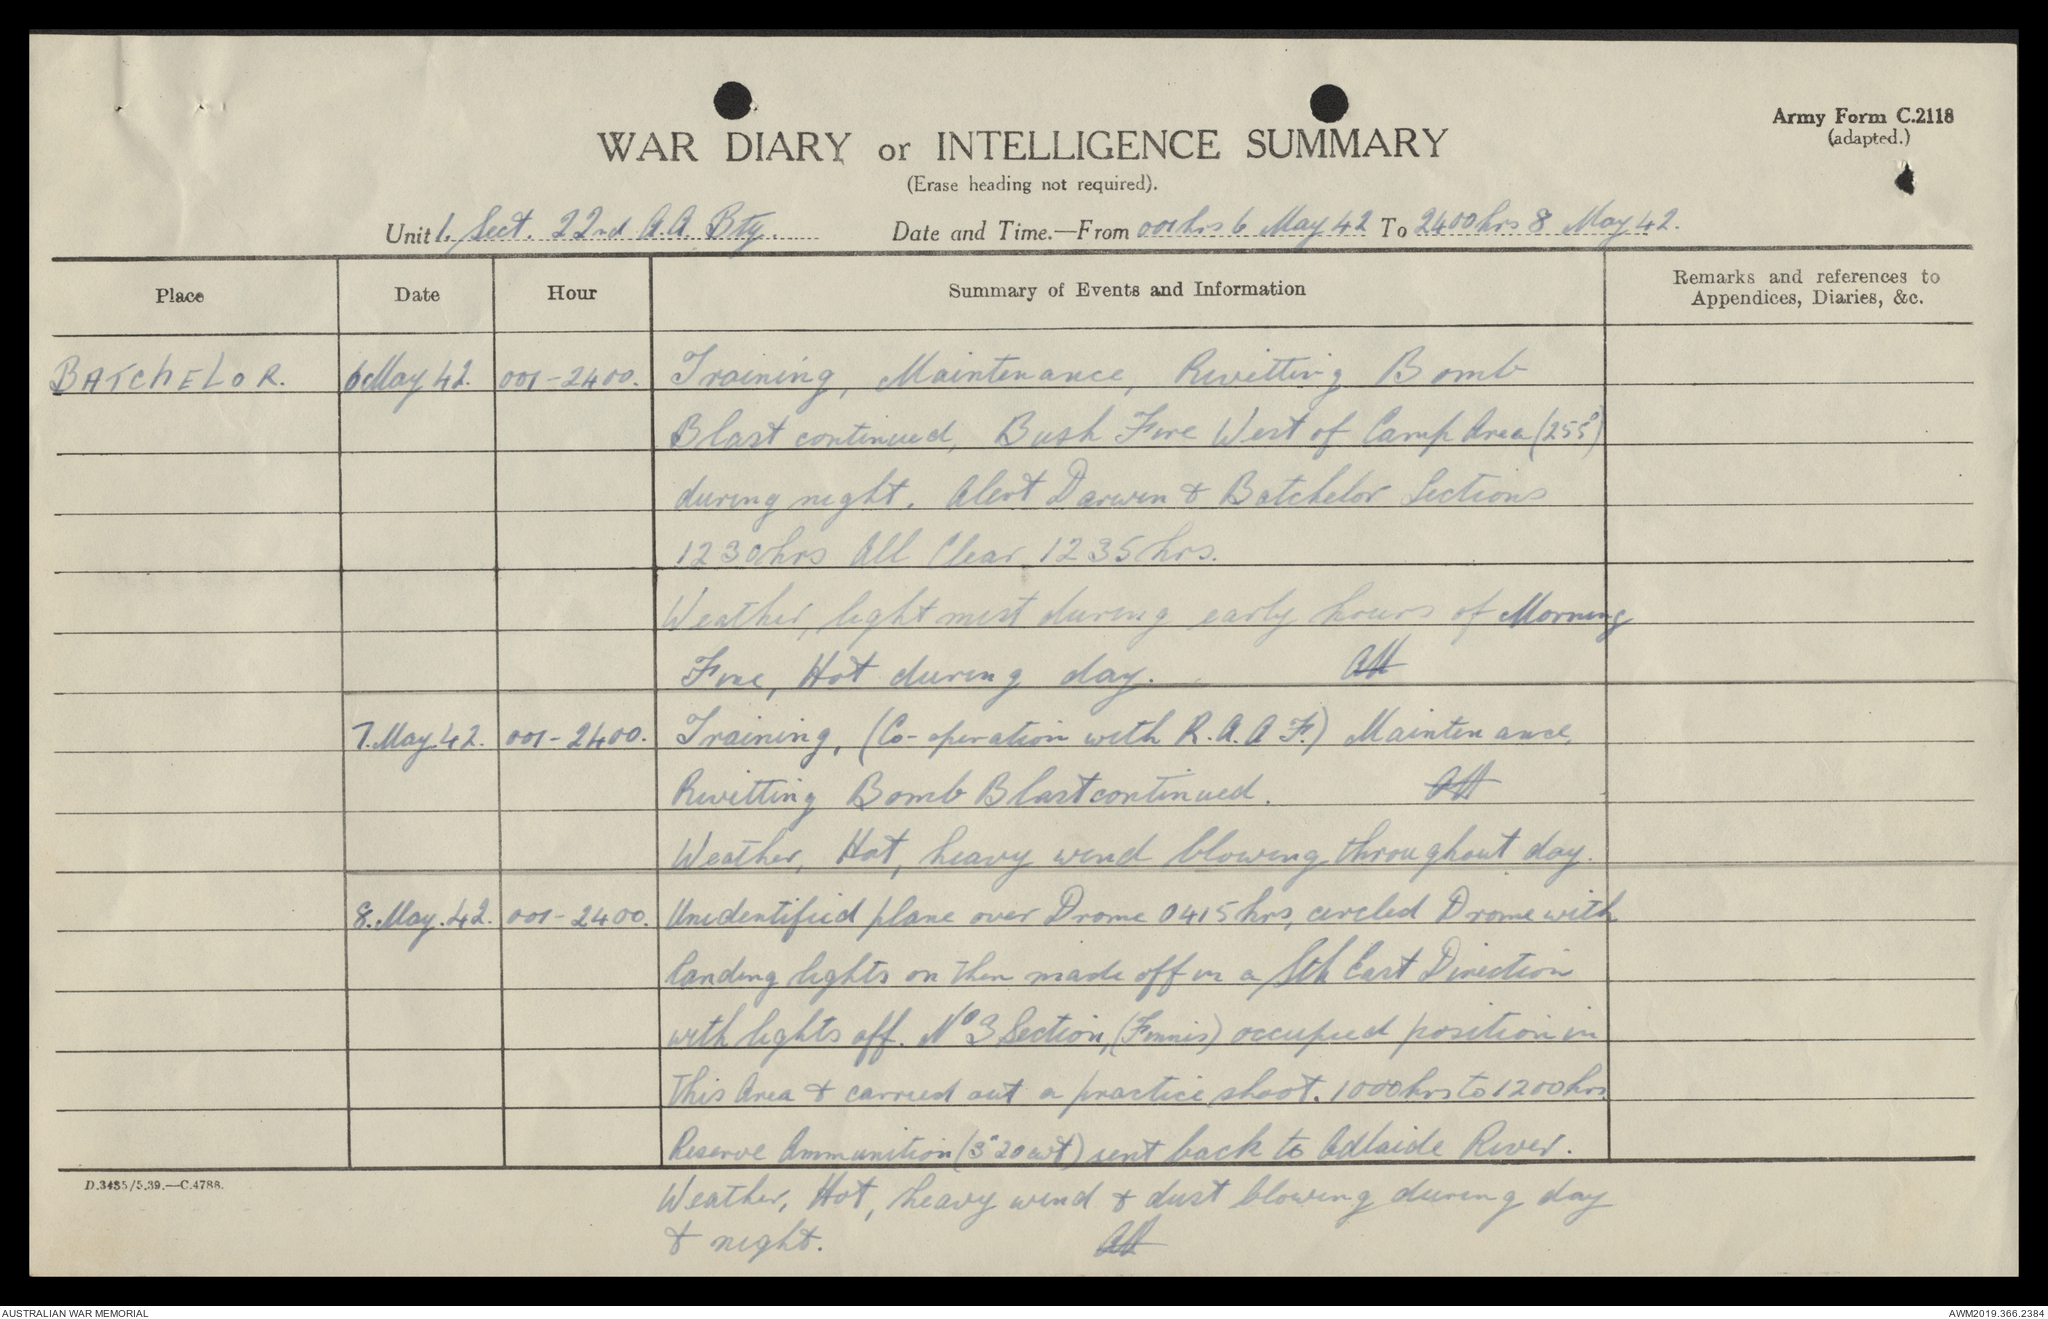 Army Form C.2118
(adapted.)
WAR DIARY or INTELLIGENCE SUMMARY
(Erase heading not required).
Unit 1. Sect. 22nd A.A. Bty. Date and Time.—From 001hrs 6 May 42 To 2400hrs 8 May 42.
Place Date Hour Summary of Events and Information Remarks and references to
Appendices, Diaries, &c.
BATCHELOR. 6 May 42. 001-2400. Training, Maintenance, Rivitting Bomb
Blast continued, Bush Fire West of Camp Area (255°)
during night. Alert Darwin & Batchelor Sections
1230hrs All Clear 1235hrs.
Weather, light mist during early hours of Morning
Fine, Hot during day.
7. May. 42. 001-2400. Training, (Co-operation with R.A.A.F.) Maintenance,
Rivitting Bomb Blast continued.
Weather, Hot, heavy wind blowing throughout day.
8. May. 42. 001-2400. Unidentified plane over Drome 0415hrs, circled Drome with
landing lights on then made off in a Sth East Direction
with lights off. No 3 Section, (Finnis) occupied position in
this Area & carried out a practice shoot. 1000hrs to 1200hrs.
Reserve Ammunition (3" 20cwt) sent back to Adlaide River.
D.3485/5.39.—C.4788.
Weather, Hot, heavy wind & dust blowing during day
& night.
AUSTRALIAN WAR MEMORIAL AWM2019.366.2384